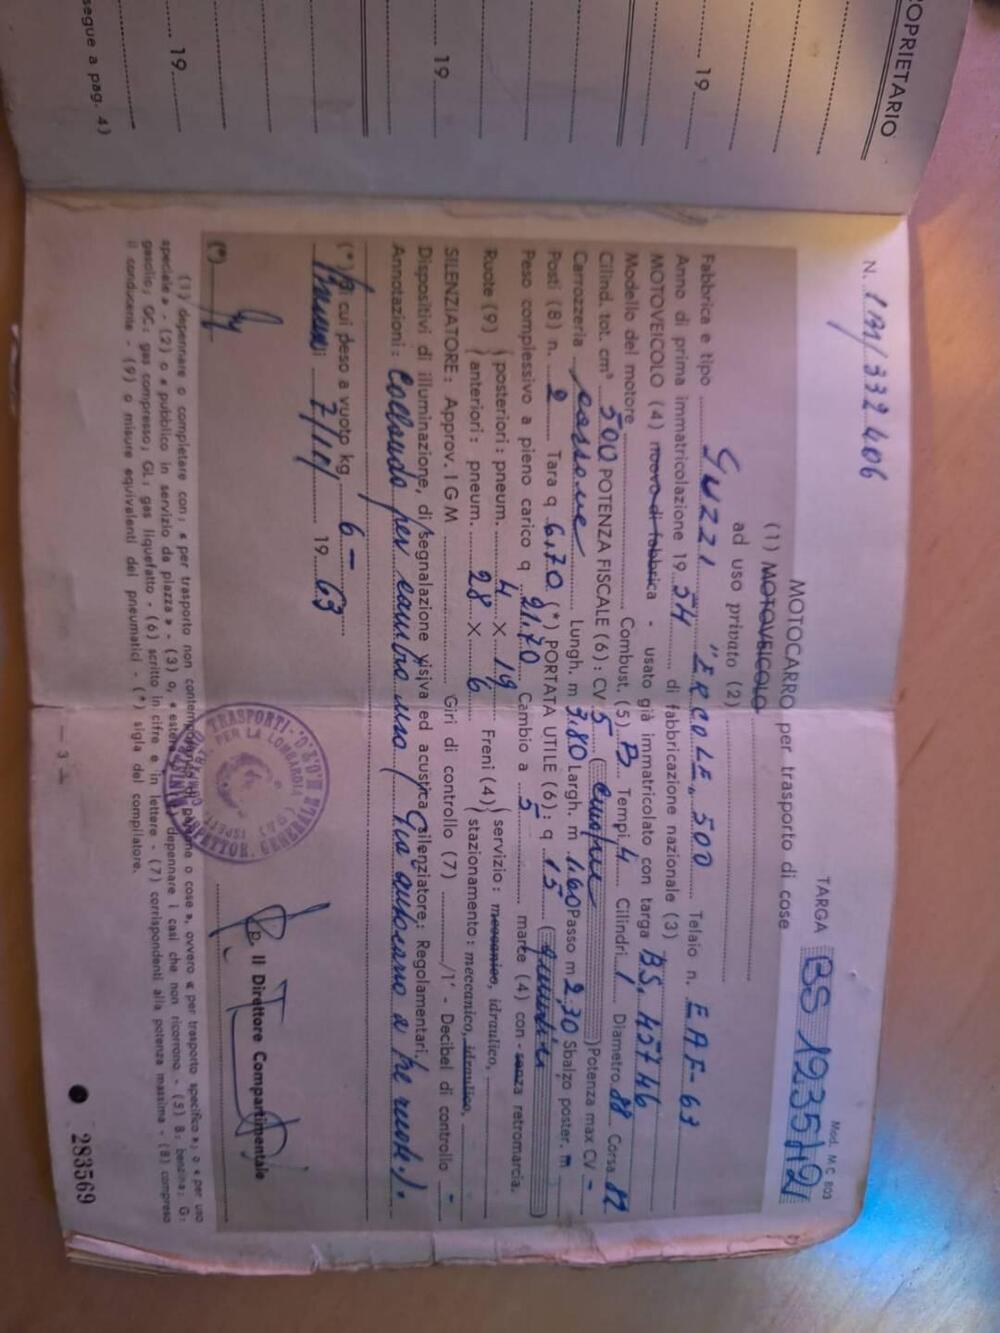 OPRIETARIO
19
19
19
segue a pag. 4)
Mod. M C 803
TARGA BS 12351,2
N. 1131/332406
MOTOCARRO per trasporto di cose
(1) MOTOVEICOLO
ad uso privato (2)
Fabbrica e tipo GUZZI "ERCOLE" 500 Telaio n. EAF-63
Anno di prima immatricolazione 1954 di fabbricazione nazionale (3)
MOTOVEICOLO (4) nuovo di fabbrica - usato già immatricolato con targa BS. 40746
Modello del motore Combust. (5) B Tempi 4 Cilindri 1 Diametro 88 Corsa 82
Cilind. tot. cm³ 500 POTENZA FISCALE (6): CV 5 (cinque) Potenza max CV -
Carrozzeria cassone Lungh. m 3.80 Largh. m 1.60 Passo m 2.30 Sbalzo poster. m
Posti (8) n. 2 Tara q 6,70 (*) PORTATA UTILE (6): q 15 (quindici)
Peso complessivo a pieno carico q 21.70 Cambio a 5 marce (4) con - senza retromarcia.
Ruote (9) { posteriori: pneum. 4 X 19 Freni (4) { servizio: meccanico, idraulico,
anteriori: pneum. 28 X 6 stazionamento: meccanico, idraulico,
SILENZIATORE: Approv. I G M Giri di controllo (7) /1' - Decibel di controllo -
Dispositivi di illuminazione, di segnalazione visiva ed acustica, silenziatore: Regolamentari.
Annotazioni: Collaudo per cambio uso (già autocarro a tre ruote).
(*) di cui peso a vuoto kg. 6-
li 7/11/1963
p. Il Direttore Compartimentale
(*)
(1) depennare o completare con: « per trasporto non contemporaneo di persone o cose », ovvero « per trasporto specifico »; o « per uso
speciale » - (2) o « pubblico in servizio da piazza » - (3) o « estera » - (4) depennare i casi che non ricorrono. - (5) B: benzina; G:
gasolio; GC: gas compresso; GL: gas liquefatto - (6) scritto in cifre e in lettere - (7) corrispondenti alla potenza massima - (8) compreso
il conducente - (9) o misure equivalenti dei pneumatici - (*) sigla del compilatore.
— 3 —
283569